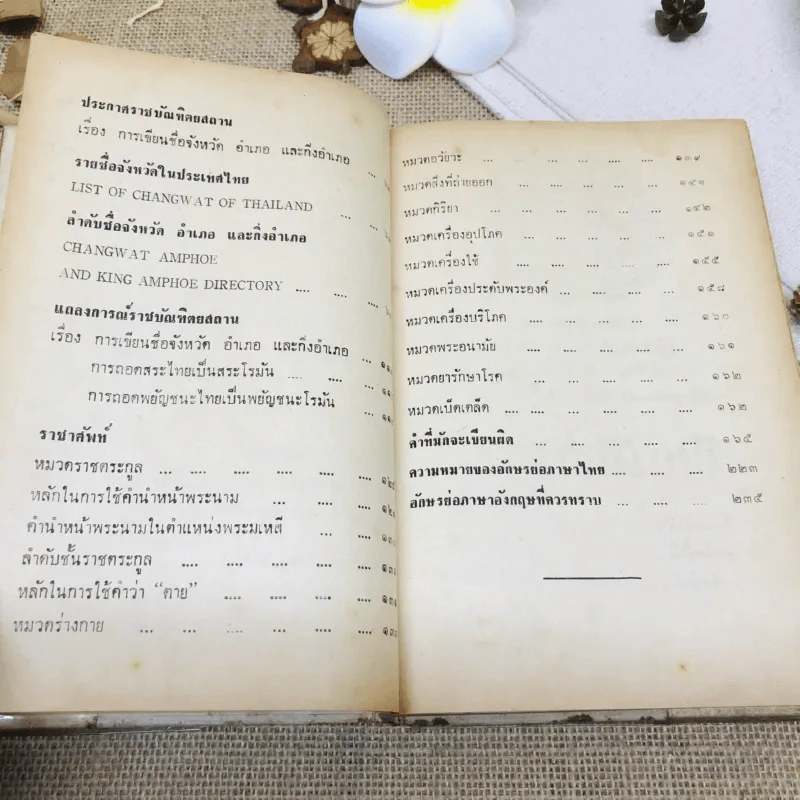 ประกาศราชบัณฑิตยสถาน
เรื่อง การเขียนชื่อจังหวัด อำเภอ และกิ่งอำเภอ ...
รายชื่อจังหวัดในประเทศไทย
LIST OF CHANGWAT OF THAILAND ... ...
ลำดับชื่อจังหวัด อำเภอ และกิ่งอำเภอ
CHANGWAT AMPHOE
AND KING AMPHOE DIRECTORY .... .... ....
แถลงการณ์ราชบัณฑิตยสถาน
เรื่อง การเขียนชื่อจังหวัด อำเภอ และกิ่งอำเภอ ...
การถอดสระไทยเป็นสระโรมัน .... ....
การถอดพยัญชนะไทยเป็นพยัญชนะโรมัน
ราชาศัพท์
หมวดราชตระกูล ... .... .... .... ....
หลักในการใช้คำนำหน้าพระนาม ... .... ....
คำนำหน้าพระนามในตำแหน่งพระมเหสี ... ....
ลำดับชั้นราชตระกูล .... .... .... ....
หลักในการใช้คำว่า “ตาย” .... .... .... ....
หมวดร่างกาย ... ... .... .... .... ....
หมวดอวัยวะ ... ... ... .... .... ๑๓๙
หมวดสิ่งที่ถ่ายออก ... ... ... .... .... ๑๔๑
หมวดกิริยา ... ... ... ... ... ๑๔๒
หมวดเครื่องอุปโภค ... .... .... .... ๑๕๑
หมวดเครื่องใช้ ... .... .... .... .... ๑๕๕
หมวดเครื่องประดับพระองค์ ... .... .... .... ๑๕๘
หมวดเครื่องบริโภค .... .... .... .... ๑๖๐
หมวดพระอนามัย .... .... .... .... ๑๖๑
หมวดยารักษาโรค ... .... .... .... ๑๖๒
หมวดเบ็ดเตล็ด .... .... .... .... .... ๑๖๒
คำที่มักจะเขียนผิด ... .... .... .... ๑๖๕
ความหมายของอักษรย่อภาษาไทย .... .... .... ๒๒๓
อักษรย่อภาษาอังกฤษที่ควรทราบ ... .... ... ๒๓๕